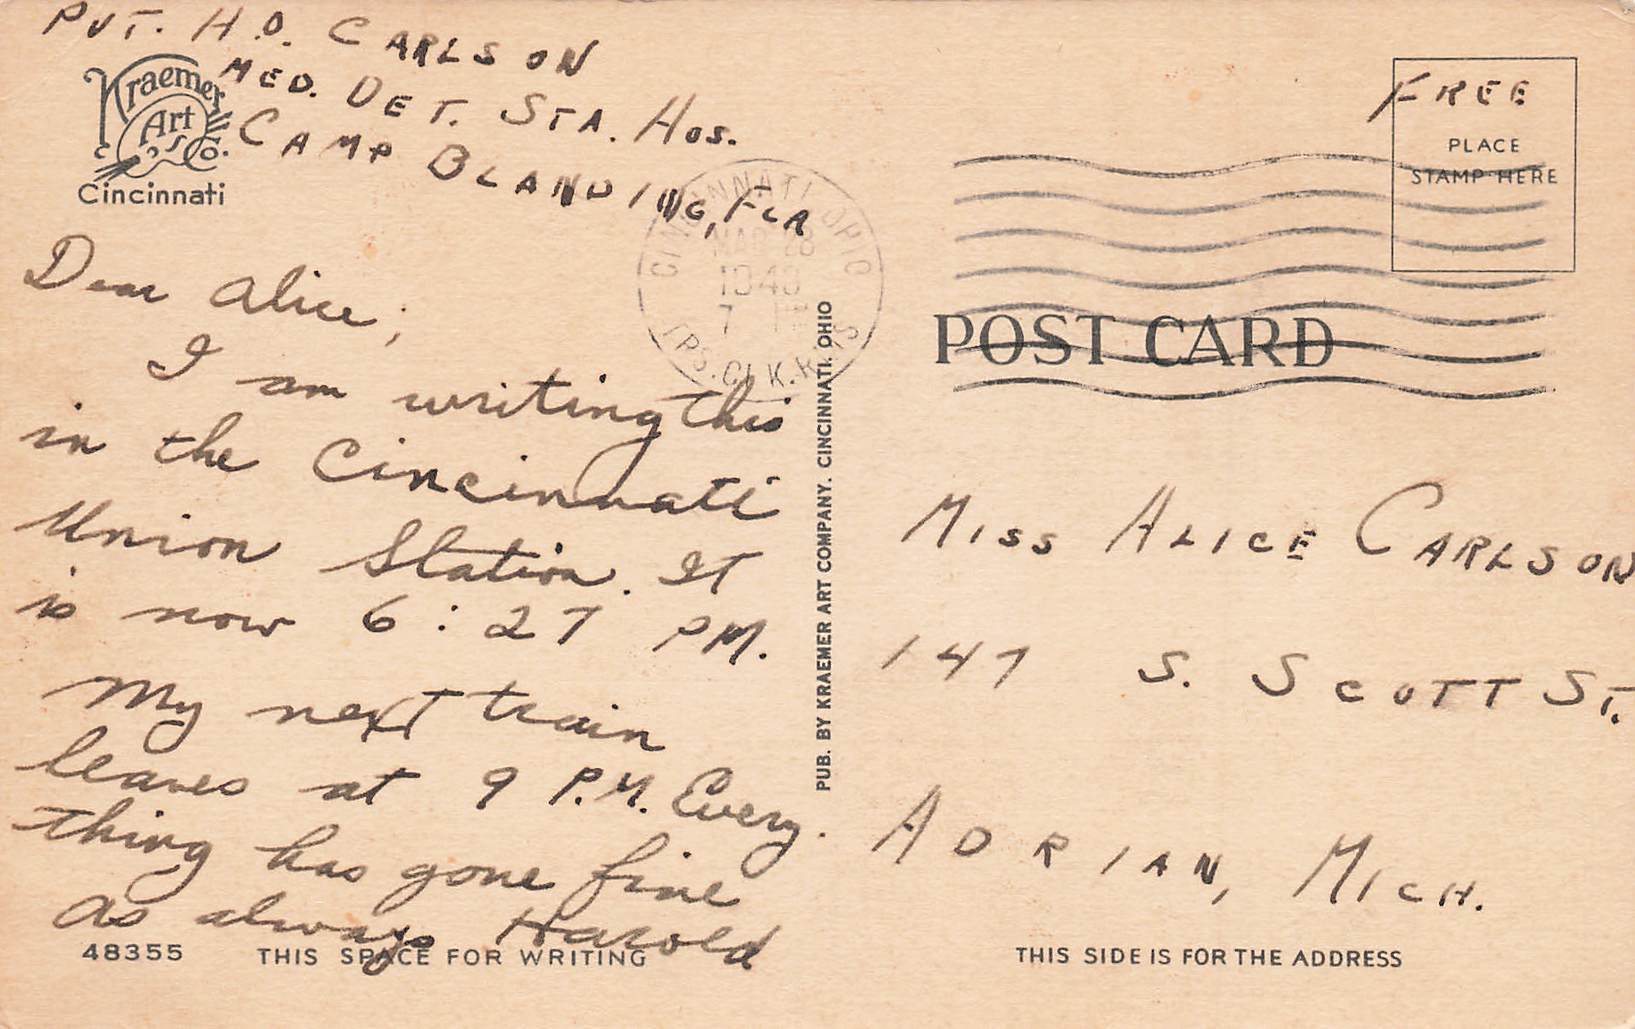 PVT. H.D. CARLSON
MED. DET. STA. HOS.
CAMP BLANDING, FLA
Kraemer
Art
Co.
Cincinnati
Dear Alice;
I am writing this
in the Cincinnati
Union Station. It
is now 6:27 PM.
My next train
leaves at 9 P.M. Every
thing has gone fine
As always Harold
48355 THIS SPACE FOR WRITING
PUB. BY KRAEMER ART COMPANY. CINCINNATI. OHIO
CINCINNATI
MAR 28
7
FREE
PLACE
STAMP HERE
POST CARD
MISS ALICE CARLSON
147 S. SCOTT ST.
ADRIAN, MICH.
THIS SIDE IS FOR THE ADDRESS